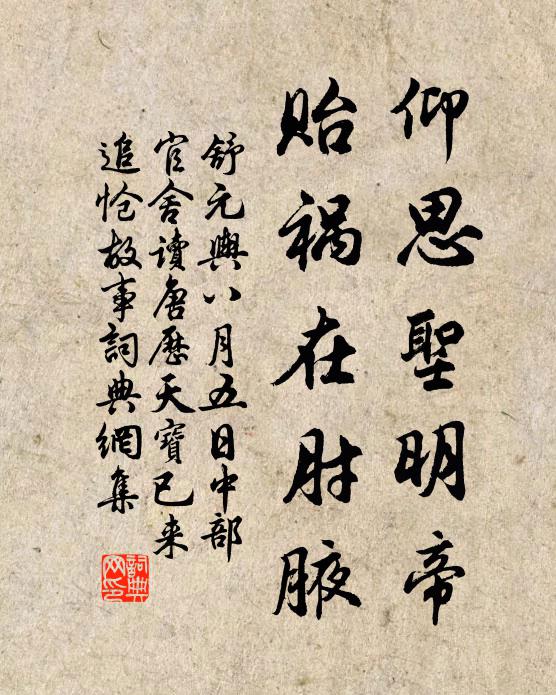 仰思聖明帝
貽禍在肘腋
舒元輿八月五日中部
官舍讀唐歷天寶已来
追愴故事詞典網集
詞典
网印